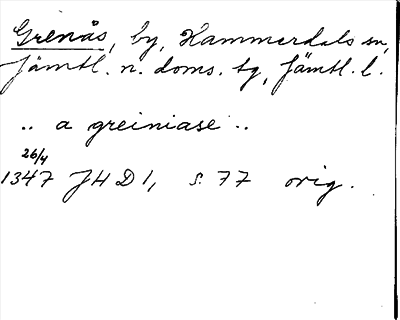 Grenås, by, Hammerdals sn,
Jämtl. n. doms. tg, Jämtl. l.
.. a greiniase ..
26/4
1347 JHD 1, s. 77 orig.